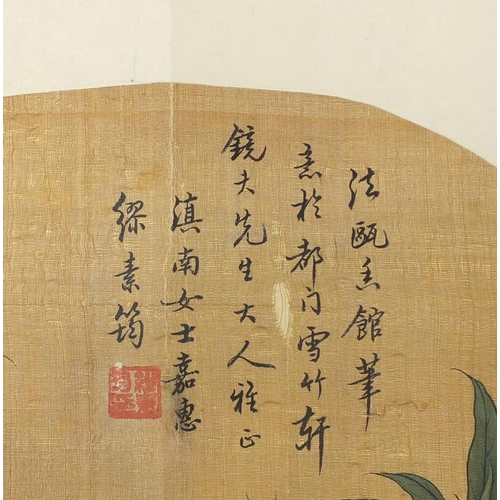 法甌香館筆
意於都门雪竹轩
鏡夫先生大人雅正
滇南女士嘉惠
繆素筠